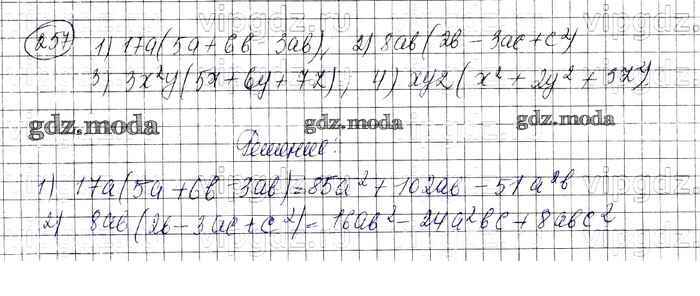 257 1) 17a(5a + 6b 3ab), 2) 8ab(2b - 3ac + c²)
3) 3x²y(5x + 6y + 7z); 4) xyz(x² + 2y² + 3z²)
gdz.moda gdz.moda gdz.moda
Решение:
1) 17a(5a + 6b - 3ab) = 85a² + 102ab - 51a²b
2) 8ab(2b - 3ac + c²) = 16ab² - 24a²bc + 8abc²